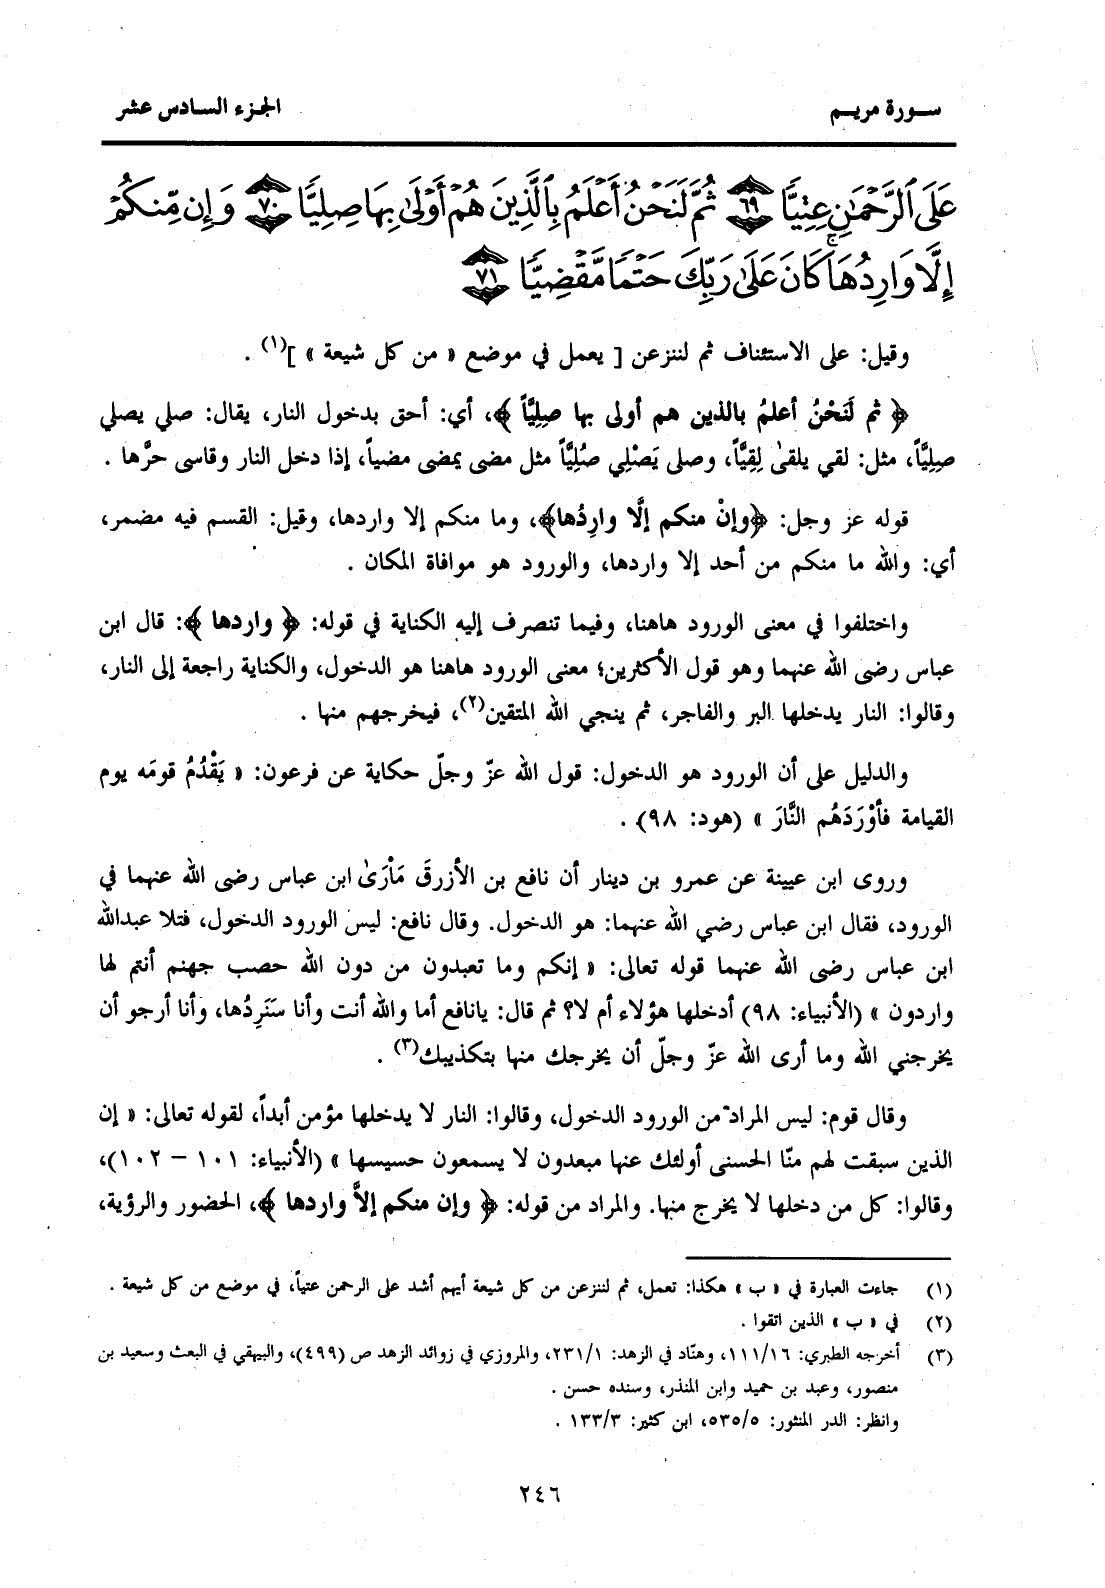 سورة مريم
الجزء السادس عشر
عَلَى ٱلرَّحْمَٰنِ عِتِيًّا ٦٩ ثُمَّ لَنَحْنُ أَعْلَمُ بِٱلَّذِينَ هُمْ أَوْلَىٰ بِهَا صِلِيًّا ٧٠ وَإِن مِّنكُمْ
إِلَّا وَارِدُهَا ۚ كَانَ عَلَىٰ رَبِّكَ حَتْمًا مَّقْضِيًّا ٧١
وقيل: على الاستئناف ثم لننزعن [ يعمل في موضع « من كل شيعة » ](١) .
﴿ ثم لَنَحْنُ أعلمُ بالذين هم أولى بها صِلِيَّاً ﴾، أي: أحق بدخول النار، يقال: صلي يصلي
صِلِيَّاً، مثل: لقي يلقىٰ لِقِيَّاً، وصلى يَصْلِي صُلِيَّاً مثل مضى يمضى مضياً، إذا دخل النار وقاسى حرَّها .
قوله عز وجل: ﴿وإنْ منكم إلَّا وارِدُها﴾، وما منكم إلا واردها، وقيل: القسم فيه مضمر،
أي: والله ما منكم من أحد إلا واردها، والورود هو موافاة المكان .
واختلفوا في معنى الورود هاهنا، وفيما تنصرف إليه الكناية في قوله: ﴿ واردها ﴾: قال ابن
عباس رضى الله عنهما وهو قول الأكثرين؛ معنى الورود هاهنا هو الدخول، والكناية راجعة إلى النار،
وقالوا: النار يدخلها البر والفاجر، ثم ينجي الله المتقين(٢)، فيخرجهم منها .
والدليل على أن الورود هو الدخول: قول الله عزّ وجلّ حكاية عن فرعون: « يَقْدُمُ قومَه يوم
القيامة فأوْرَدَهُم النَّارَ » (هود: ٩٨) .
وروى ابن عيينة عن عمرو بن دينار أن نافع بن الأزرقَ مَاْرَىٰ ابن عباس رضى الله عنهما في
الورود، فقال ابن عباس رضي الله عنهما: هو الدخول. وقال نافع: ليس الورود الدخول، فتلا عبدالله
ابن عباس رضى الله عنهما قوله تعالى: « إنكم وما تعبدون من دون الله حصب جهنم أنتم لها
واردون » (الأنبياء: ٩٨) أدخلها هؤلاء أم لا؟ ثم قال: يانافع أما والله أنت وأنا سَنَرِدُها، وأنا أرجو أن
يخرجني الله وما أرى الله عزّ وجلّ أن يخرجك منها بتكذيبك(٣) .
وقال قوم: ليس المراد من الورود الدخول، وقالوا: النار لا يدخلها مؤمن أبداً، لقوله تعالى: « إن
الذين سبقت لهم منّا الحسنى أولئك عنها مبعدون لا يسمعون حسيسها » (الأنبياء: ١٠١ – ١٠٢)،
وقالوا: كل من دخلها لا يخرج منها. والمراد من قوله: ﴿ وإن منكم إلاَّ واردها ﴾، الحضور والرؤية،
(١) جاءت العبارة في « ب » هكذا: تعمل، ثم لننزعن من كل شيعة أيهم أشد على الرحمن عتياً، في موضع من كل شيعة .
(٢) في « ب » الذين اتقوا .
(٣) أخرجه الطبري: ١١١/١٦، وهنّاد في الزهد: ٢٣١/١، والمروزي في زوائد الزهد ص (٤٩٩)، والبيهقي في البعث وسعيد بن
منصور، وعبد بن حميد وابن المنذر، وسنده حسن .
وانظر: الدر المنثور: ٥٣٥/٥، ابن كثير: ١٣٣/٣ .
٢٤٦